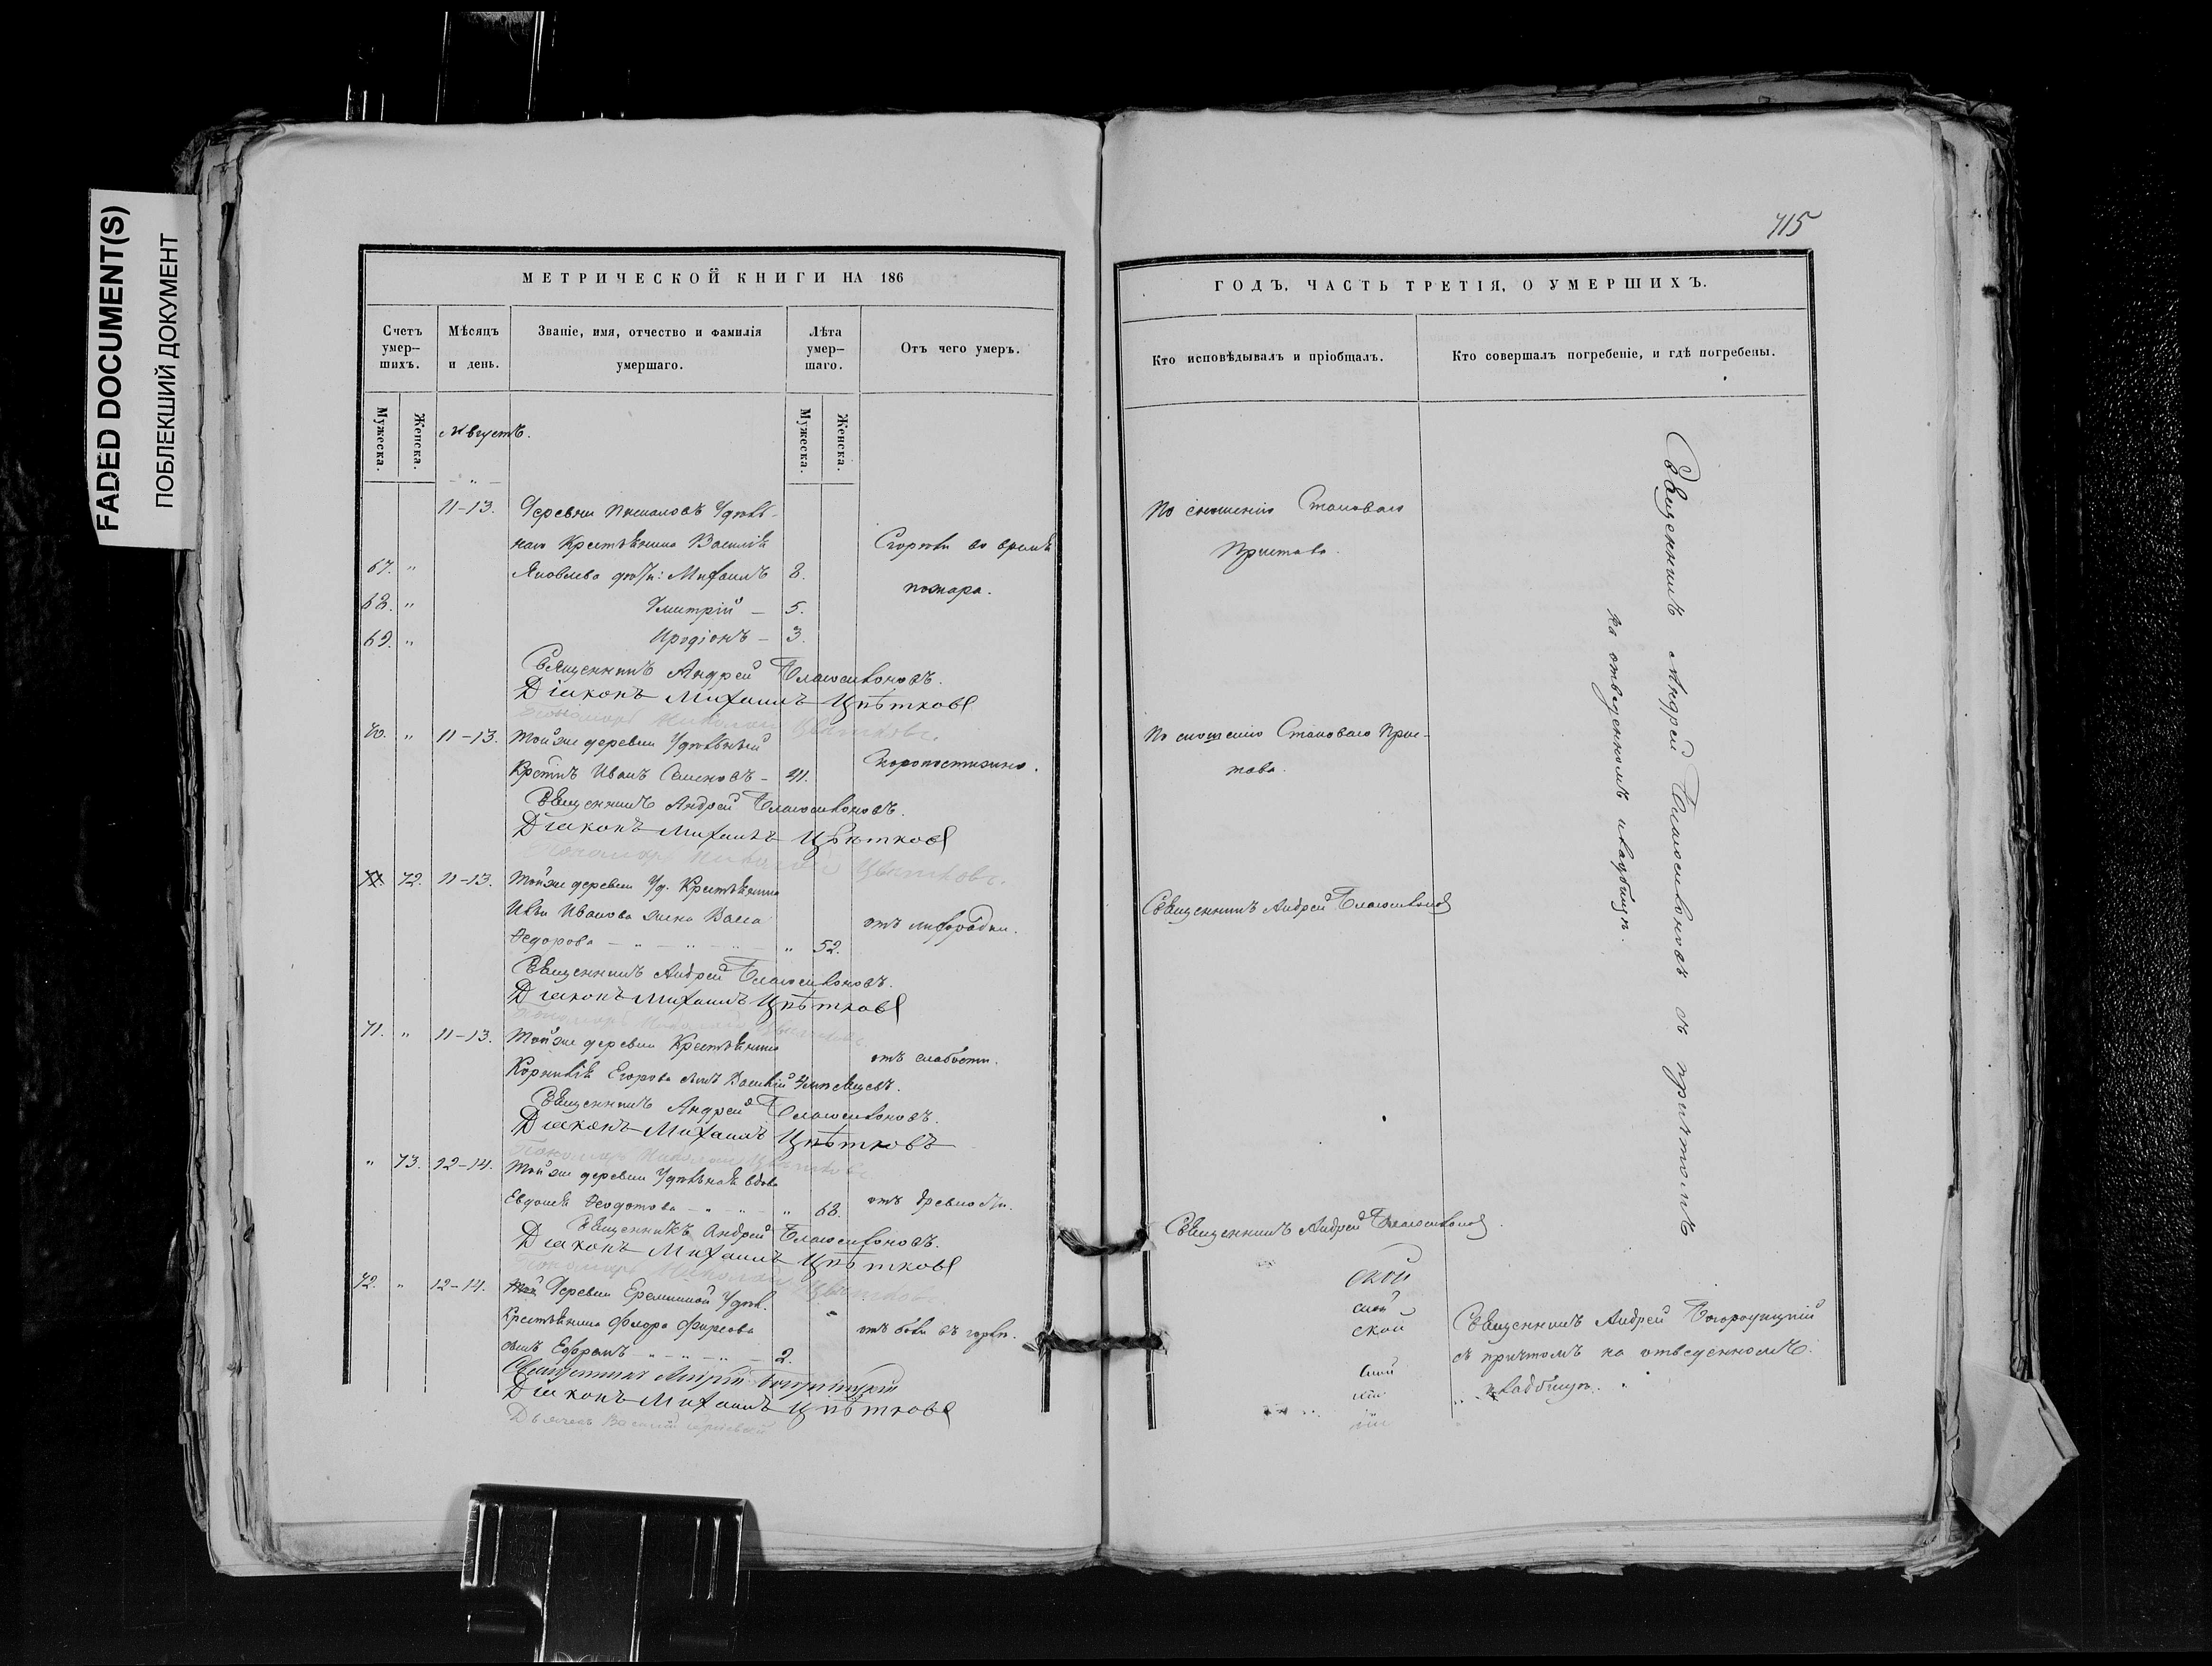 FADED DOCUMENT(S)
ПОБЛЕКШИЙ ДОКУМЕНТ
715
МЕТРИЧЕСКОЙ КНИГИ НА 186
Счетъ умер-шихъ.
Мѣсяцъ и день.
Званіе, имя, отчество и фамилія умершаго.
Лѣта умер-шаго.
Отъ чего умеръ.
Мужеска.
Женска.
Августъ.
Мужеска.
Женска.
11-13. Деревни Удѣль-
наго Крестьянина Василія Сгорѣли во время
67. " Яковлева дѣти: Михаилъ 8. пожара.
68. " Димитрій - 5.
69. " Иродіонъ - 3.
Священникъ Андрей Благосклоновъ.
Діаконъ Михаилъ Цвѣтковъ
Пономарь Николай Цвѣтковъ.
70. " 11-13. Той же деревни Удѣльный
Крестнъ Иванъ Семеновъ - 41. Скоропостижно.
Священникъ Андрей Благосклоновъ.
Діаконъ Михаилъ Цвѣтковъ
Пономарь Николай Цвѣтковъ.
72. 11-13. Той же деревни Уд. Крестьянина
Ивана жена Васса отъ лихорадки.
Федорова - " - " - " - " 52.
Священникъ Андрей Благосклоновъ.
Діаконъ Михаилъ Цвѣтковъ
Пономарь Николай Цвѣтковъ
71. " 11-13. Той же деревни Крестьянина отъ слабости.
Корнилія Егорова сынъ Василій
Священникъ Андрей Благосклоновъ.
Діаконъ Михаилъ Цвѣтковъ
Пономарь Николай Цвѣтковъ
" 73. 12-14. Той же деревни Удѣльная вдова
Евдокія Феодотова - " - " - " 68. отъ древности.
Священникъ Андрей Благосклоновъ.
Діаконъ Михаилъ Цвѣтковъ
Пономарь Николай Цвѣтковъ.
72. " 12-14. Деревни Ереминой Удѣл.
Крестьянина Фирсова отъ боли въ горлѣ.
сынъ Ефремъ - " - " - " - 2.
Священникъ Андрей Богородицкій
Діаконъ Михаилъ Цвѣтковъ
Дьячекъ Василій
ГОДЪ, ЧАСТЬ ТРЕТІЯ, О УМЕРШИХЪ.
Кто исповѣдывалъ и пріобщалъ.
Кто совершалъ погребеніе, и гдѣ погребены.
По сношенію Становаго
Пристава.
По сношенію Становаго Прис-
тава.
Священникъ Андрей Благосклоновъ
Священникъ Андрей Благосклоновъ.
Священникъ Андрей Благосклоновъ съ причтомъ
на отведенномъ кладбищѣ.
ской
ской
Священникъ Андрей Богородицкій
съ причтомъ на отведенномъ
кладбищѣ.